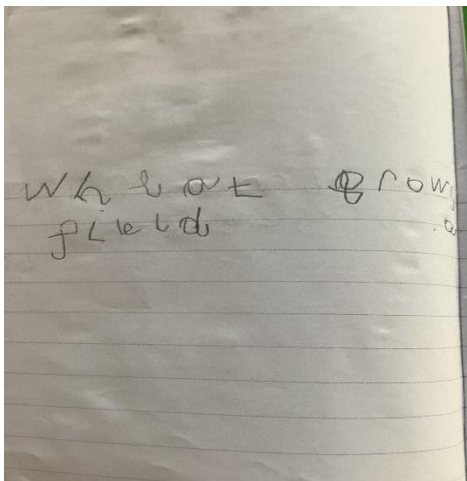 Wheat grows
field a